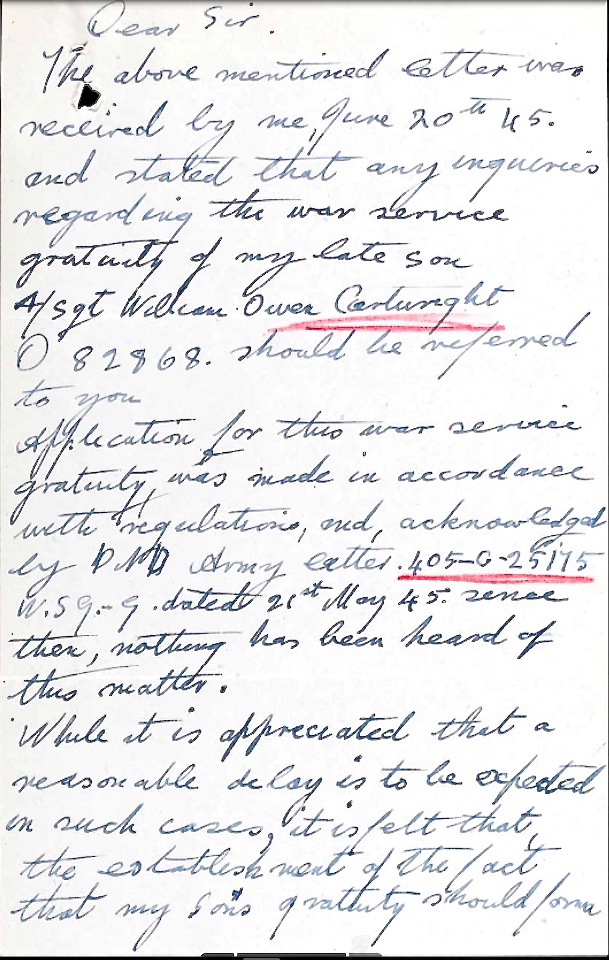 Dear Sir.
The above mentioned letter was
received by me, June 20th 45.
and stated that any inquiries
regarding the war service
gratuity of my late son
A/Sgt William Owen Cartwright
O 82868. should be referred
to you
Application for this war service
gratuity, was made in accordance
with regulations, and, acknowledged
by DND Army letter. 405-C-25175
W.S.G.-9. dated 21st May 45. since
then, nothing has been heard of
this matter.
While it is appreciated that a
reasonable delay is to be expected
in such cases, it is felt that,
the establishment of the fact
that my son's gratuity should form